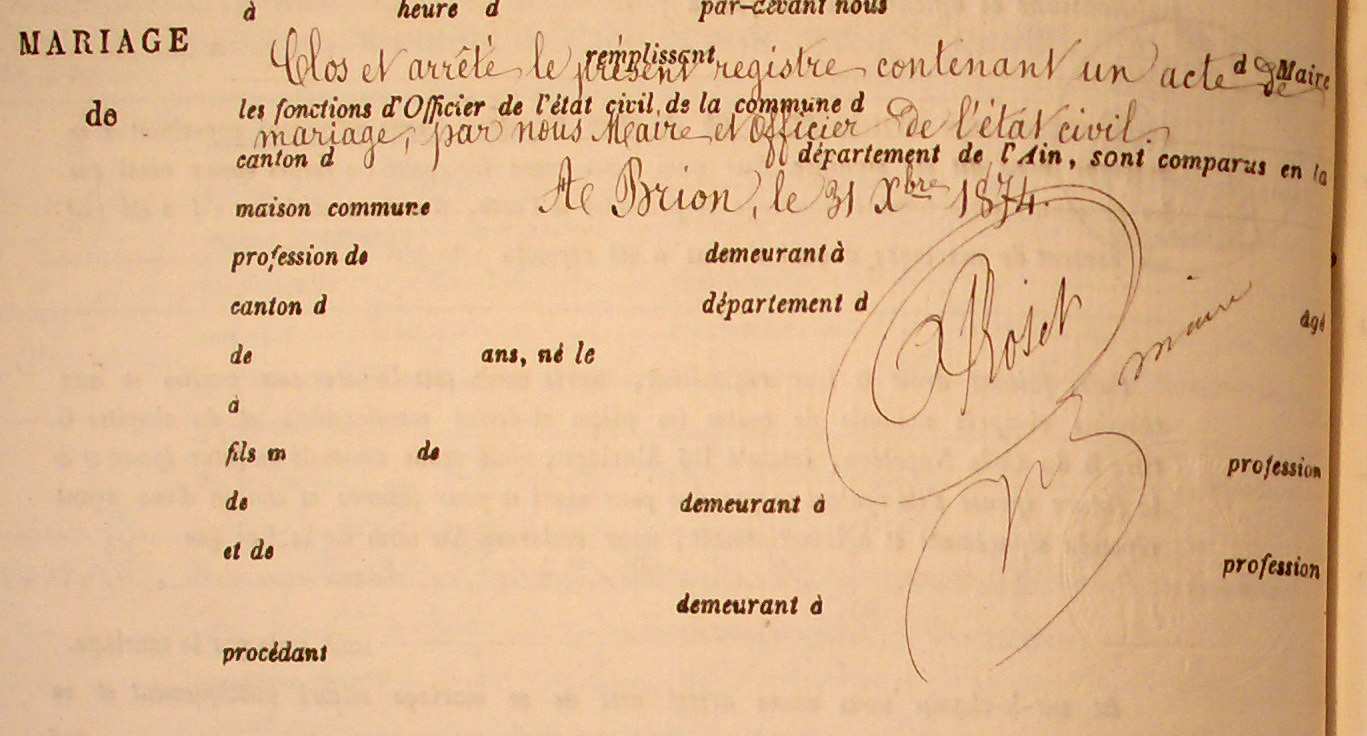 à heure d par-devant nous
MARIAGE
remplissant d Maire
Clos et arrêté le présent registre contenant un acte de
de
les fonctions d'Officier de l'état civil, de la commune d
mariage, par nous Maire et Officier de l'état civil.
canton d département de l'Ain, sont comparus en la
A Brion, le 31 Xbre 1874.
maison commune
profession de demeurant à
canton d département d
A Roset
maire
âgé
de ans, né le
à
fils m de profession
de demeurant à
et de profession
demeurant à
procédant